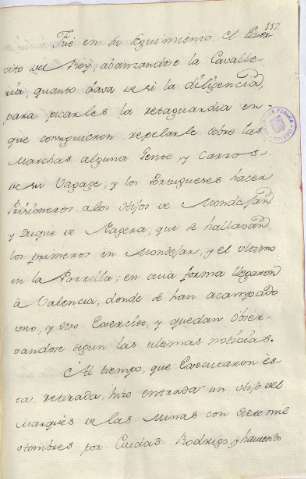 557.
Fue en su Seguimiento el Exer
cito del Rey, abanzandose la Cavalle
ria, quanto dava de si la diligencia,
para picarles la retaguardia en
que consiguieron sobre las
Marchas alguna Gente y Carros
de su Vagage; y los Portugueses hacer
Prisioneros a los Hijos de Mondejar
y Duque de Naxera, que se hallavan
los primeros en Mondejar, y el ultimo
en la Parrilla; en cuia forma llegaron
à Valencia, donde se han acampado
uno, y otro Exercito, y quedan Obser
vandose segun las ultimas noticias.
Al tiempo, que Executaron es
ta retirada, hizo entrada un Hijo del
Marqués de las Minas con
Hombres por Ciudad Rodrigo, y haviendo